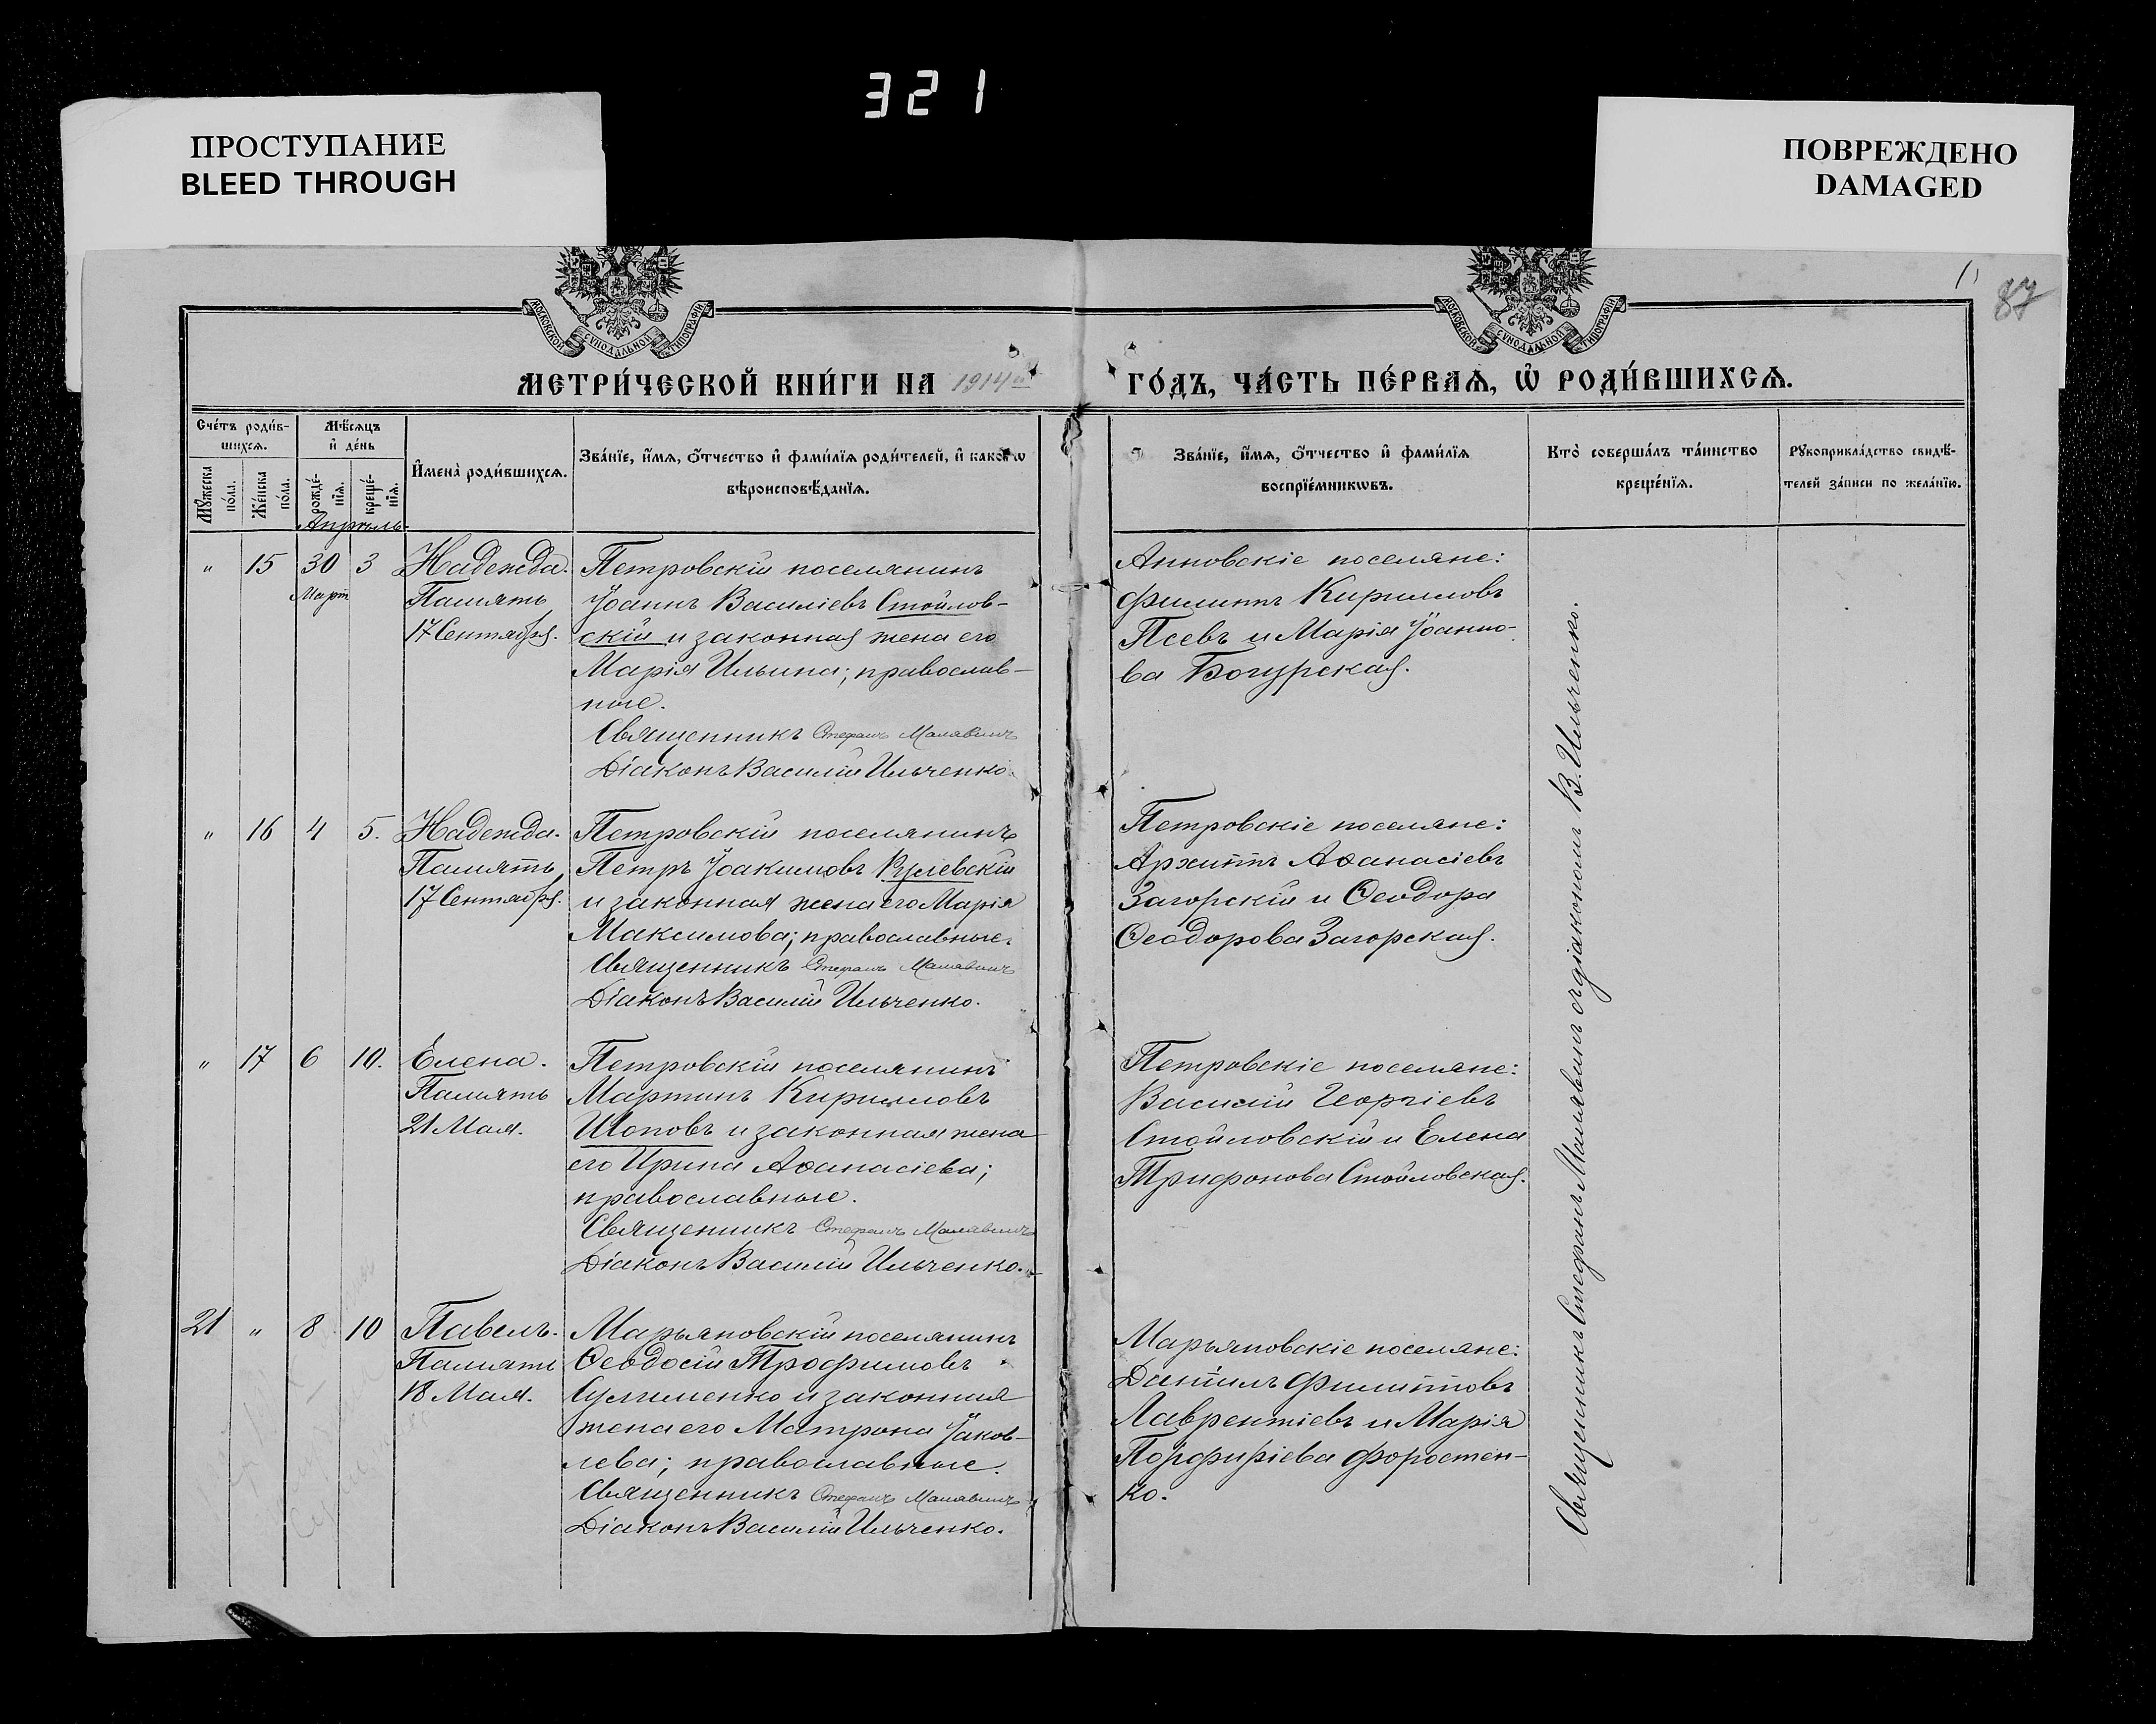 321
ПРОСТУПАНИЕ
BLEED THROUGH
ПОВРЕЖДЕНО
DAMAGED
87
МОСКОВСКОЙ СѴНОДАЛЬНОЙ ТИПОГРАФІИ
МОСКОВСКОЙ СѴНОДАЛЬНОЙ ТИПОГРАФІИ
МЕТРИ́ЧЕСКОЙ КНИ́ГИ НА 1914й ГО́ДЪ, ЧА́СТЬ ПЕ́РВАѦ, Ѡ҆ РОДИ́ВШИХСѦ.
Сче́тъ роди́в-
шихсѧ.
Мꙋ́жеска по́ла.
Же́нска по́ла.
Мѣ́сѧцъ
и҆ де́нь
рожде́-
нїѧ.
креще́-
нїѧ.
И҆мена̀ роди́вшихсѧ.
Зва́нїе, и҆́мѧ, ѻ҆́тчество и҆ фами́лїѧ роди́телей, и҆ како́гѡ
вѣроисповѣ́данїѧ.
Зва́нїе, и҆́мѧ, ѻ҆́тчество и҆ фами́лїѧ
воспрїе́мникѡвъ.
Кто̀ соверша́лъ та́инство
креще́нїѧ.
Рꙋкоприкла́дство свидѣ́-
телей за́писи по жела́нїю.
Апрѣль
" 15 30 3
Март
Надежда.
Память
17 Сентября.
Петровскій поселянинъ
Іоаннъ Василіевъ Стойлов-
скій и законная жена его
Марія Ильина; православ-
ные.
Священникъ Стефанъ Малявинъ
Діаконъ Василій Ильченко.
Анновскіе поселяне:
Филиппъ Кирилловъ
Псевъ и Марія Іоанно-
ва Богурская.
" 16 4 5.
Надежда.
Память
17 Сентября.
Петровскій поселянинъ
Петръ Іоакимовъ Кулевскій
и законная жена его Марія
Максимова; православные.
Священникъ Стефанъ Малявинъ
Діаконъ Василій Ильченко.
Петровскіе поселяне:
Архиппъ Аѳанасіевъ
Загорскій и Ѳеодора
Ѳеодорова Загорская.
" 17 6 10.
Елена.
Память
21 Мая.
Петровскій поселянинъ
Мартинъ Кирилловъ
Шоповъ и законная жена
его Ирина Аѳанасіева;
православные.
Священникъ Стефанъ Малявинъ
Діаконъ Василій Ильченко.
Петровскіе поселяне:
Василій Георгіевъ
Стойловскій и Елена
Трифонова Стойловская.
21 " 8 10
Павелъ.
Память
18 Мая.
Марьяновскій поселянинъ
Ѳеодосій Трофимовъ
Сулименко и законная
жена его Матрона Іаков-
лева; православные.
Священникъ Стефанъ Малявинъ
Діаконъ Василій Ильченко.
Марьяновскіе поселяне:
Даніилъ Филипповъ
Лаврентіевъ и Марія
Порфиріева Форостен-
ко.
Священникъ Стефанъ Малявинъ съ діакономъ В. Ильченко.